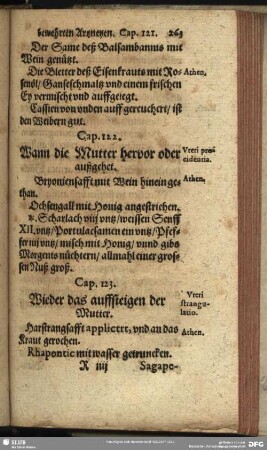 bewehrten Artzneyen. Cap. 121. 263
Der Same deß Balsambaums mit
Wein genützt.
Die Bletter deß Eisenkrauts mit Ro- Athen.
senöl/ Ganseschmaltz vnd einem frischen
Ey vermischt vnd auffgelegt.
Cassien von vnden auff gereuchert/ ist
den Weibern gut.
Cap. 122.
Wann die Mutter hervor oder Vteri pro-
außgehet. cidentia.
Bryoniensafft mit Wein hinein ge- Athen.
than.
Ochsengall mit Honig angestrichen.
Scharlach viij vntz/ weissen Senff
XII. vntz/ Portulacsamen ein vntz/ Pfef-
fer iiij vntz/ misch mit Honig/ vnnd gibs
Morgents nüchtern/ allmahl einer gros-
sen Nuß groß.
Cap. 123.
Wieder das auffsteigen der Vteri
Mutter. strangu-
latio.
Harstrangsafft applicirt, vnd an das Athen.
Kraut gerochen.
Rhapontic mit wasser getruncken.
R iiij Sagape-
SLUB
DFG